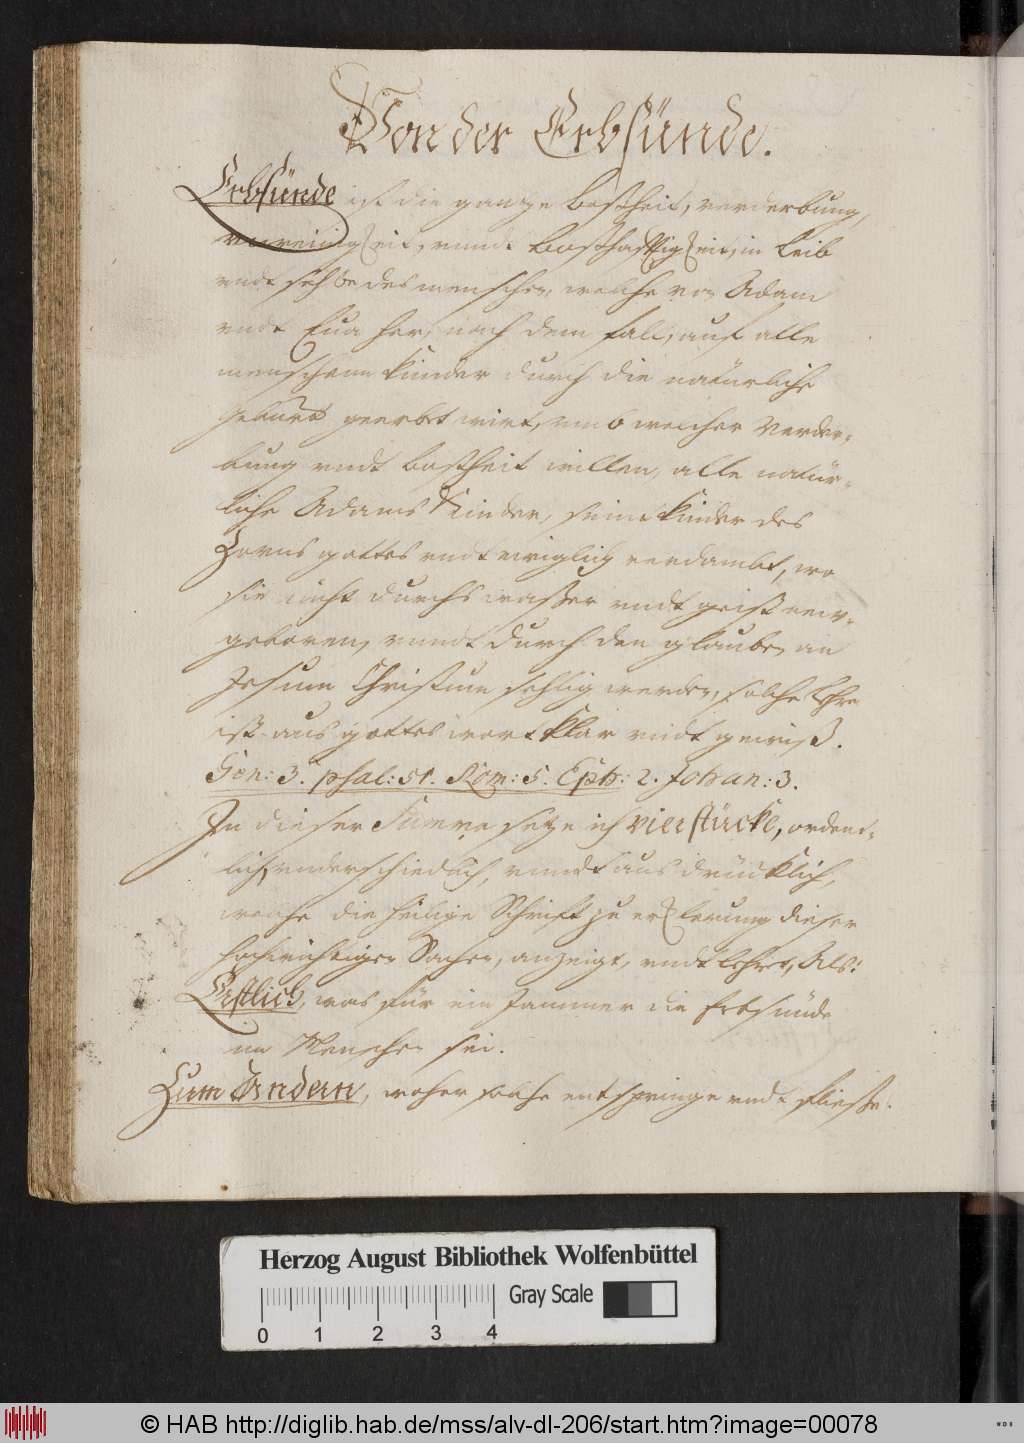 Von der Erbsünde.
Erbsünde ist die gantze boßheit, verderbung,
vnreinigkeit, vnndt boßhafftigkeit, in Leib
vndt sehle des menschen, welche von Adam
vndt Eua her, nach dem fall, auf alle
menschenn kinder durch die natürliche
geburt geerbet wirt, vmb welcher verder-
bung vndt boßheit willen, alle natür-
liche Adams Kinder, seint kinder des
Zorns gottes vndt ewiglich verdambt, wo
sie nicht durchs waßer vndt geist new-
geboren, vnndt durch den glauben an
Jesum Christum sehlig werden, solche Lehre
ist aus gottes wort klar vndt gewiß.
Gen: 3. psal: 51. Rom: 5. Eph: 2. Johan: 3.
In dieser Summa setze ich vier stücke, ordent-
lich, vnderschiedlich, vnndt ausdrücklich,
welche die heilige Schrifft zu erklerung dieser
hochwichtigen Sachen, anzeigt, vndt lehret, Als:
Erstlich, was für ein Jammer die Erbsünde
im Menschen sei.
Zum Andern, woher solche entspringe vndt fließe.
Herzog August Bibliothek Wolfenbüttel
Gray Scale
0 1 2 3 4
© HAB http://diglib.hab.de/mss/alv-dl-206/start.htm?image=00078